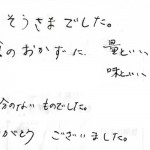 そうさまでした。
のおかずに、量といい、
味といい
分のないものでした。
がとう ございました。